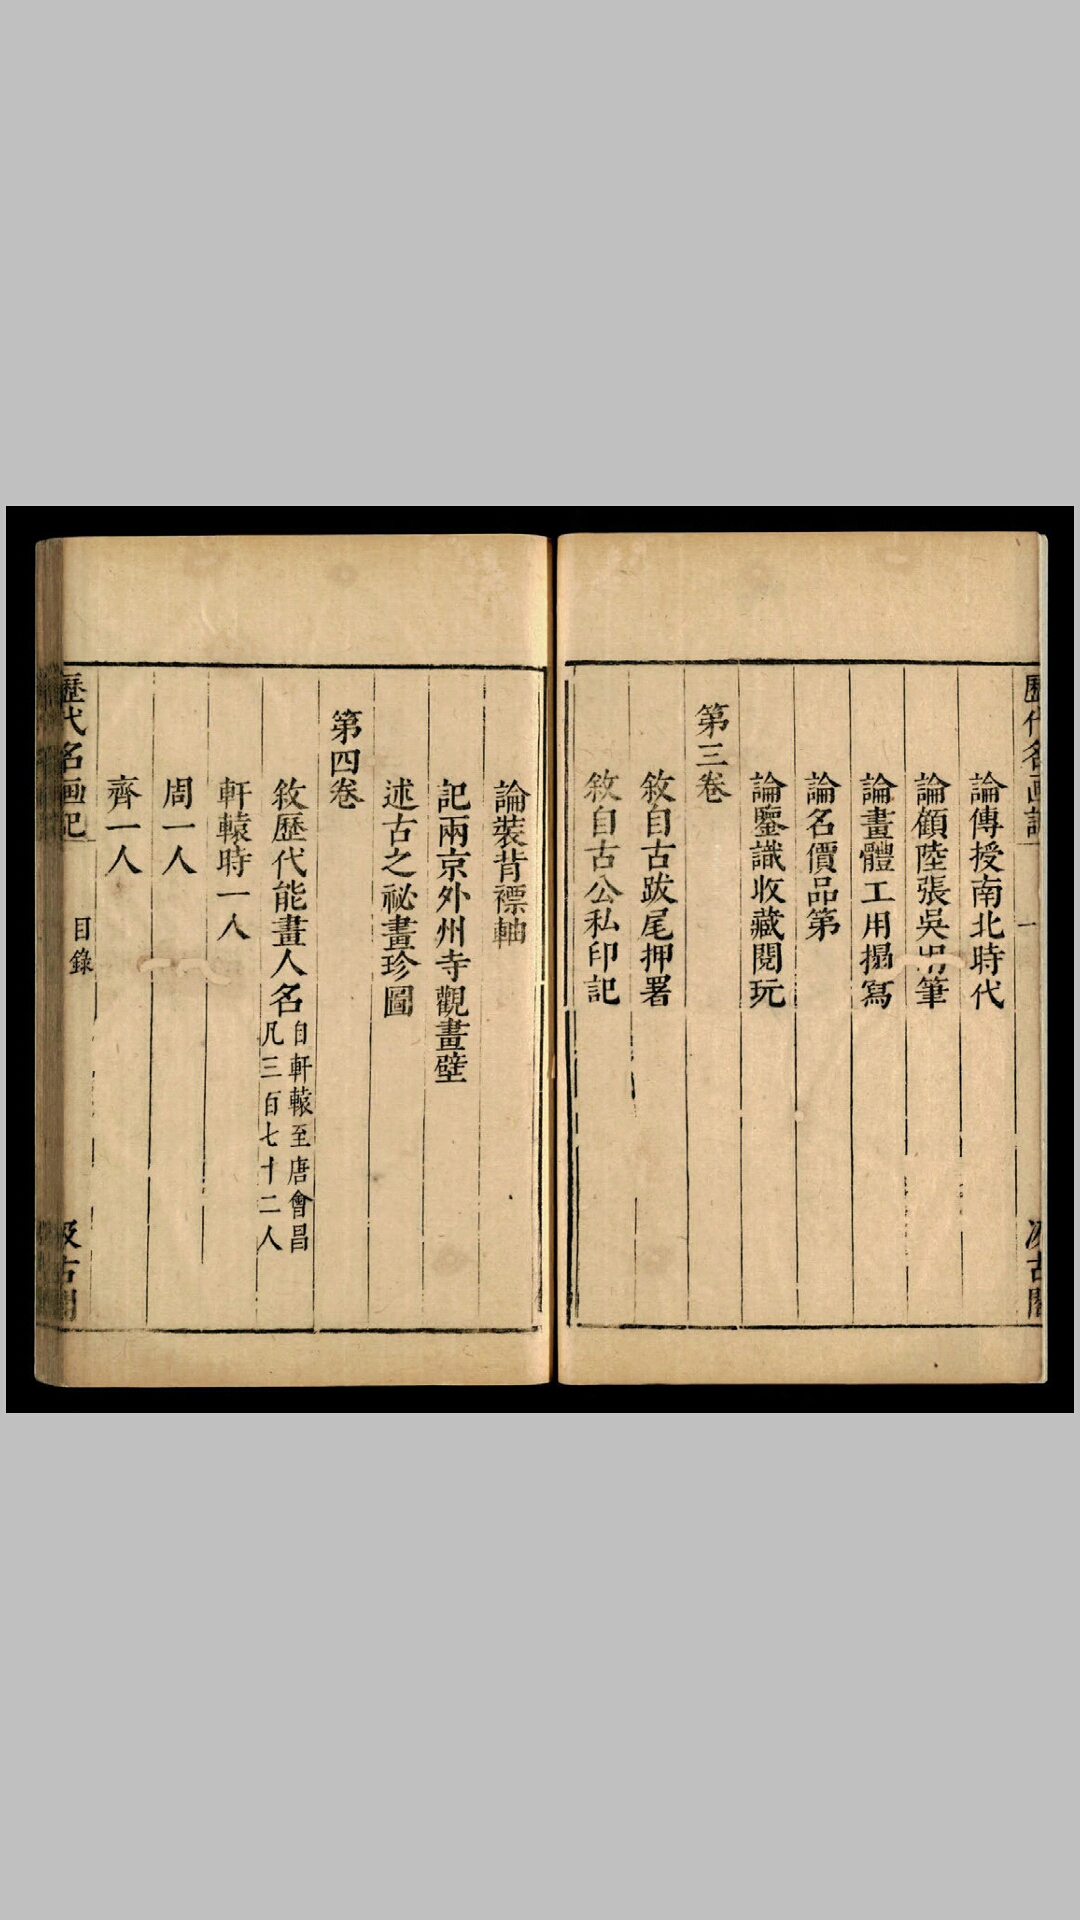 論傳授南北時代
論顧陸張吳用筆
論畫體工用搨寫
論名價品第
論鑒識收藏閱玩
第三卷
敘自古跋尾押署
敘自古公私印記
論裝背褾軸
記兩京外州寺觀畫壁
述古之祕畫珍圖
第四卷
敘歷代能畫人名自軒轅至唐會昌
凡三百七十二人
軒轅時一人
周一人
齊一人
歷代名画記
目錄
汲古閣